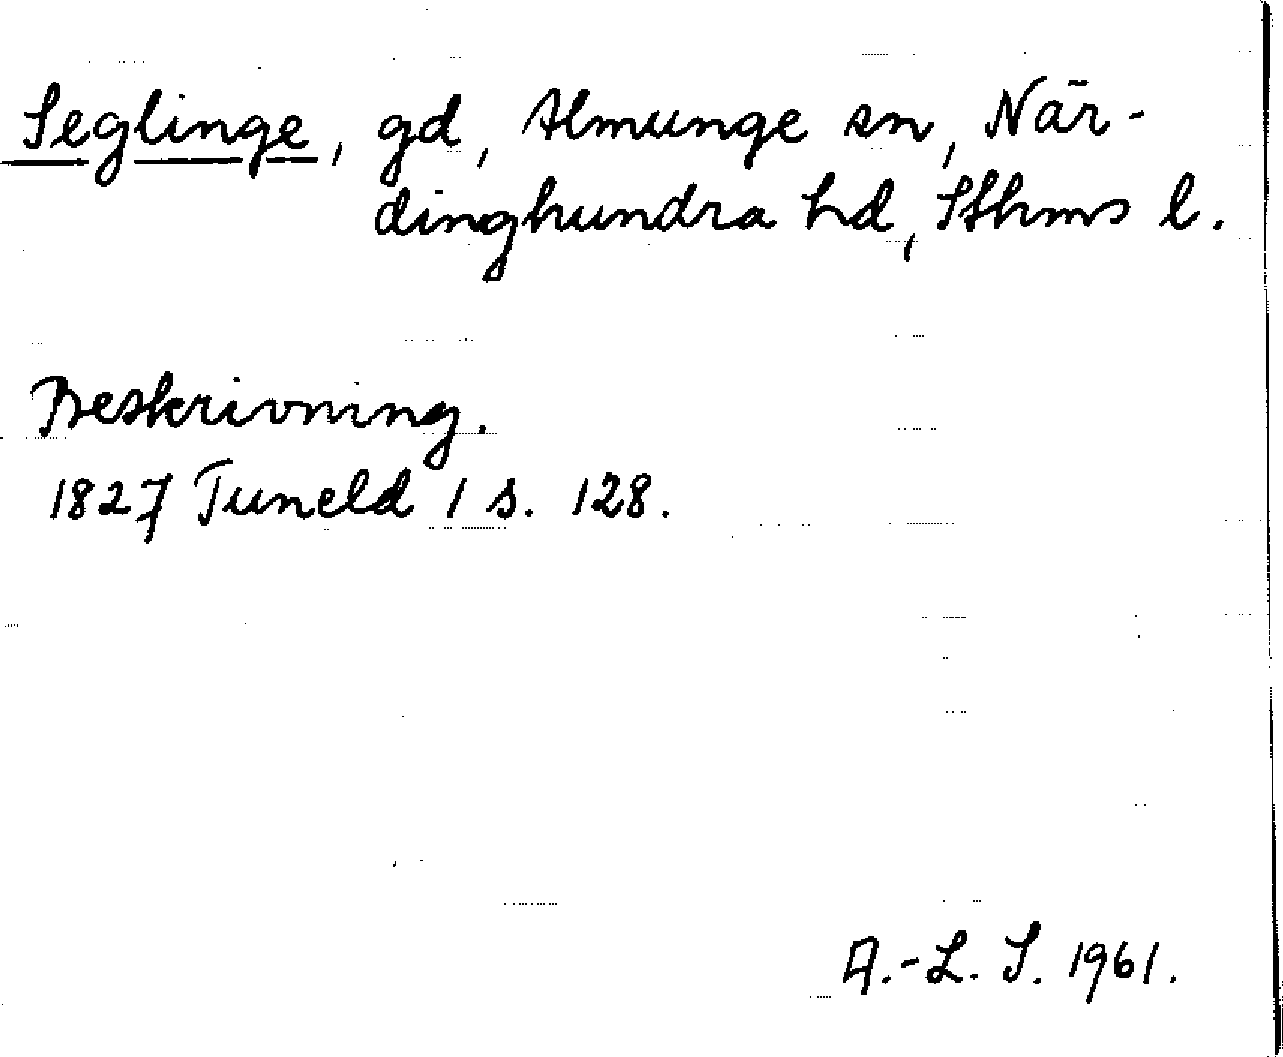 Seglinge, gd, Almunge sn, När-
dinghundra hd, Sthms l.
Beskrivning.
1827 Tuneld 1 s. 128.
A.-L. S. 1961.